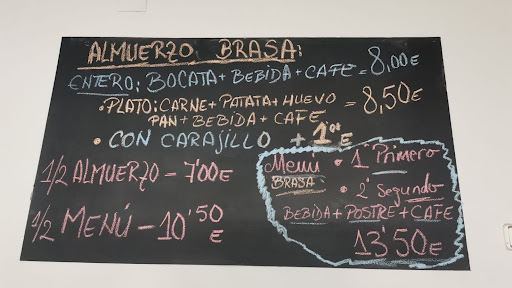 ALMUERZO BRASA:
ENTERO: BOCATA + BEBIDA + CAFE = 8,00€
• PLATO: CARNE + PATATA + HUEVO = 8,50€
PAN + BEBIDA + CAFE
• CON CARAJILLO + 1'00€
1/2 ALMUERZO - 7'00€
1/2 MENÚ - 10'50€
Menú
BRASA
• 1º Primero
• 2º Segundo
BEBIDA + POSTRE + CAFE
13'50€